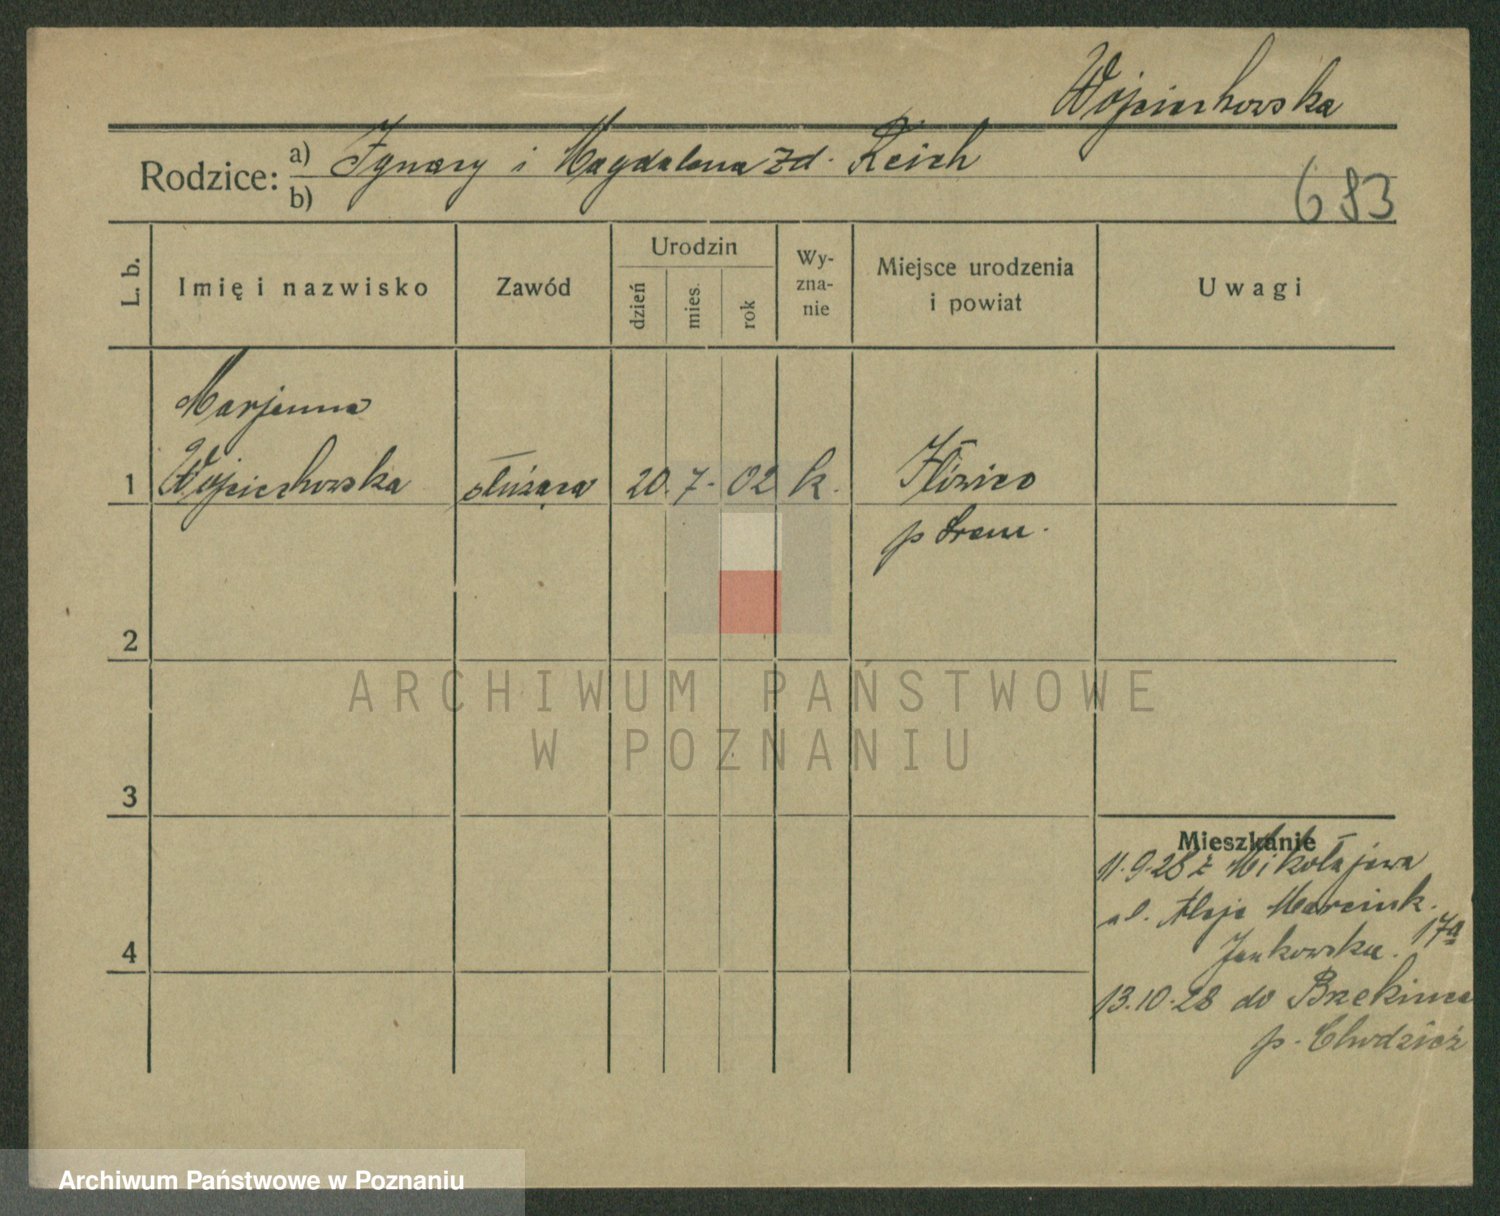 Wojciechowska
Rodzice: a) Ignacy i Magdalena zd. Reich
b)
683
L. b.
Imię i nazwisko
Zawód
Urodzin
dzień
mies.
rok
Wy-
zna-
nie
Miejsce urodzenia
i powiat
Uwagi
Marjanna
1 Wojciechowska służąca 20. 7. 02 k.
p Śrem.
2
ARCHIWUM PAŃSTWOWE
W POZNANIU
3
Mieszkanie
11.9.28 z Mikołajewa
ul. Aleje Marcink.
17a
Jankowska.
4
13.10.28 do
p. Chodzież
Archiwum Państwowe w Poznaniu